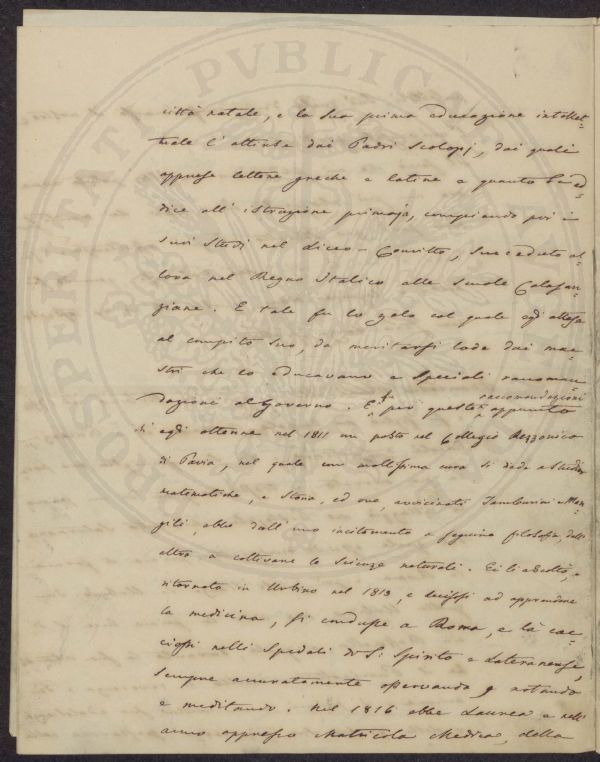 città natale, e la sua prima educazione intellet=
tuale l'attinse dai Padri Scolopj, dai quali
apprese lettere greche e latine e quanto
dice all'istruzione primaja, compiendo poi i
suoi studi nel Liceo-Convitto, succeduto al=
lora nel Regno Italico alle Scuole Calasan=
ziane. E tale fu lo zelo col quale egli attese
al compito suo, da meritarsi lode dai mae=
stri che lo educavano e speciali raccoman=
dazioni al Governo. per queste raccomandazioni appunto
egli ottenne nel 1811 un posto nel Collegio Rezzonico
di Pavia, nel quale con moltissima cura si diede a Studi
matematiche, e Storia, ed ove, avvicinati Tamburini e Man=
gili, ebbe dall'uno incitamento a seguire filosofia, dall'
altro a coltivare le Scienze naturali. Ei li ascoltò, e
ritornato in Urbino nel 1813, e decissosi ad apprendere
la medicina, si condusse a Roma, e là
nelli Spedali di S. Spirito e Lateranense,
sempre accuratamente osservando e notando
e meditando. Nel 1816 ebbe Laurea e nell'
anno appresso Matricola Medica, della
PROSPERITATI PVBLICAE